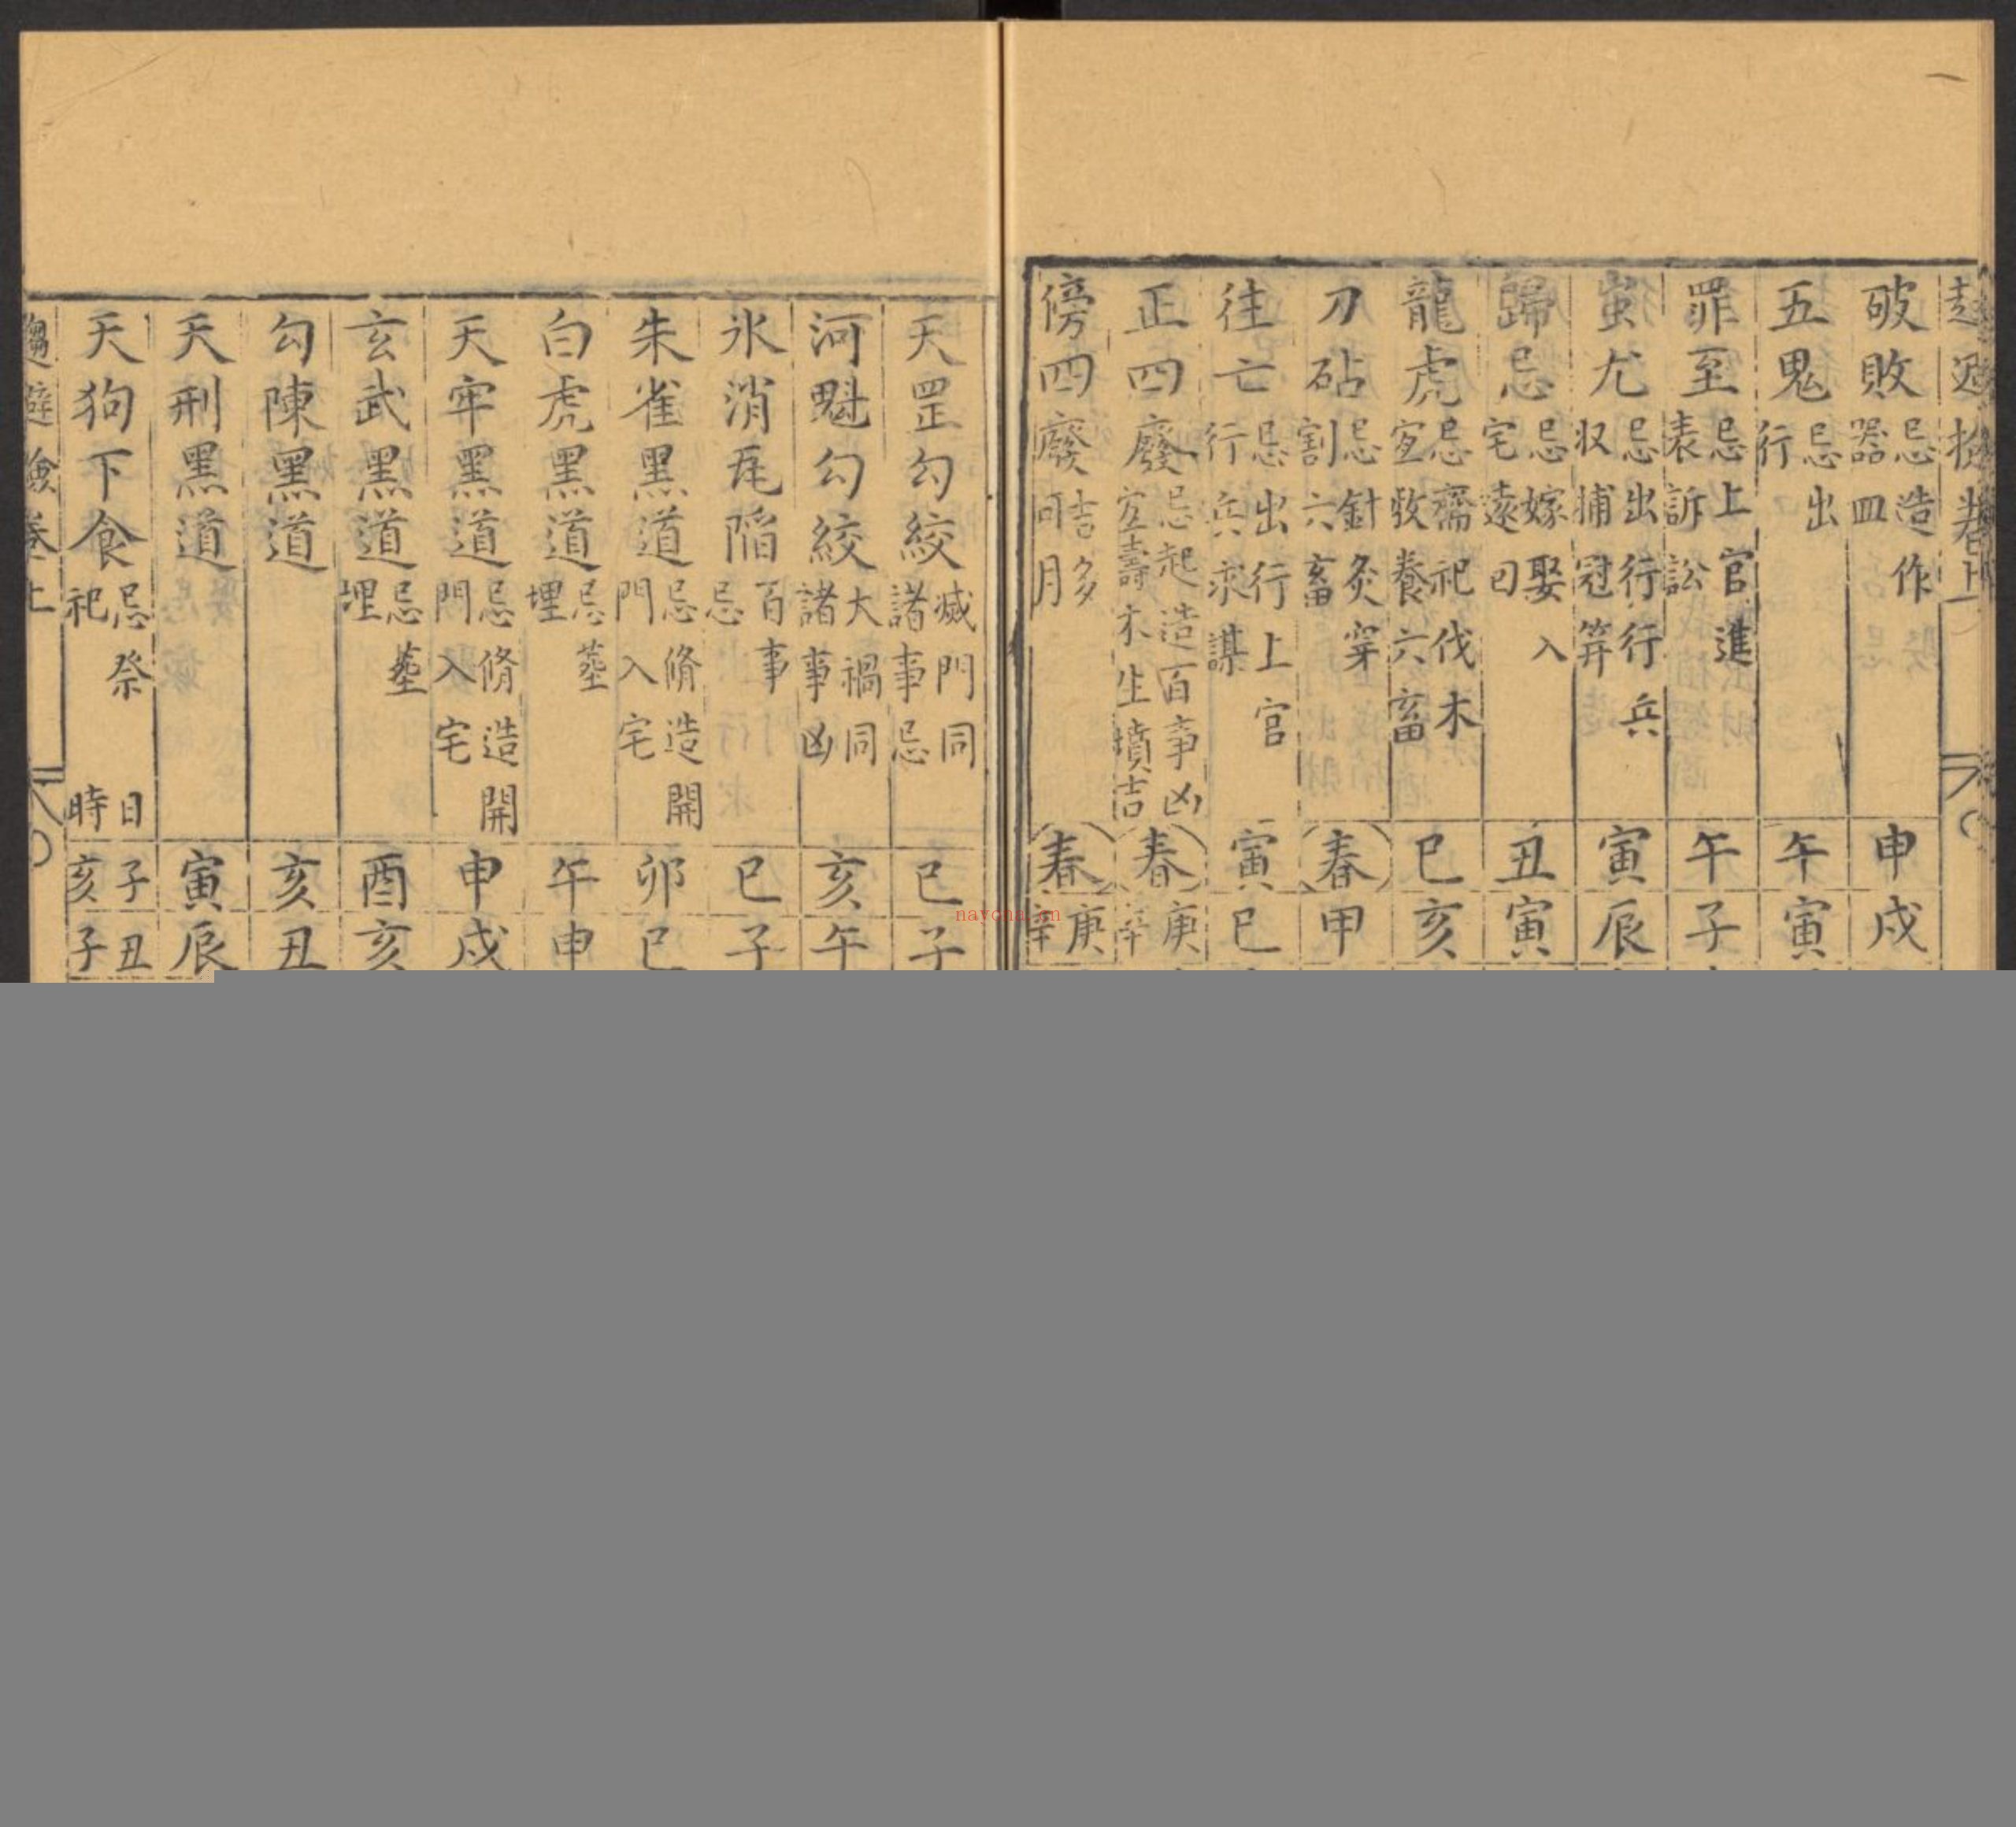 破敗忌造作器皿申戌
五鬼忌出行午寅
罪至忌上官進表訴訟午子
蚩尤忌出行行兵収捕冠筓寅辰
歸忌忌嫁娶入宅遠回丑寅
龍虎忌齋祀伐木宜牧養六畜巳亥
刀砧忌針灸穿割六畜春甲
往亡忌出行上官行兵求謀寅巳
正四廢忌起造百事凶宜壽木生墳吉春庚辛
傍四廢吉多同月春庚辛
天罡勾絞滅門同諸事忌巳子
河魁勾絞大禍同諸事凶亥午
氷消瓦陷百事忌巳子
朱雀黑道忌脩造開門入宅卯巳
白虎黑道忌塟埋午申
天牢黑道忌脩造開門入宅申戌
玄武黑道忌塟埋酉亥
勾陳黑道亥丑
天刑黑道寅辰
天狗下食忌祭祀日時子亥丑子
趨避檢卷上
nayona.cn